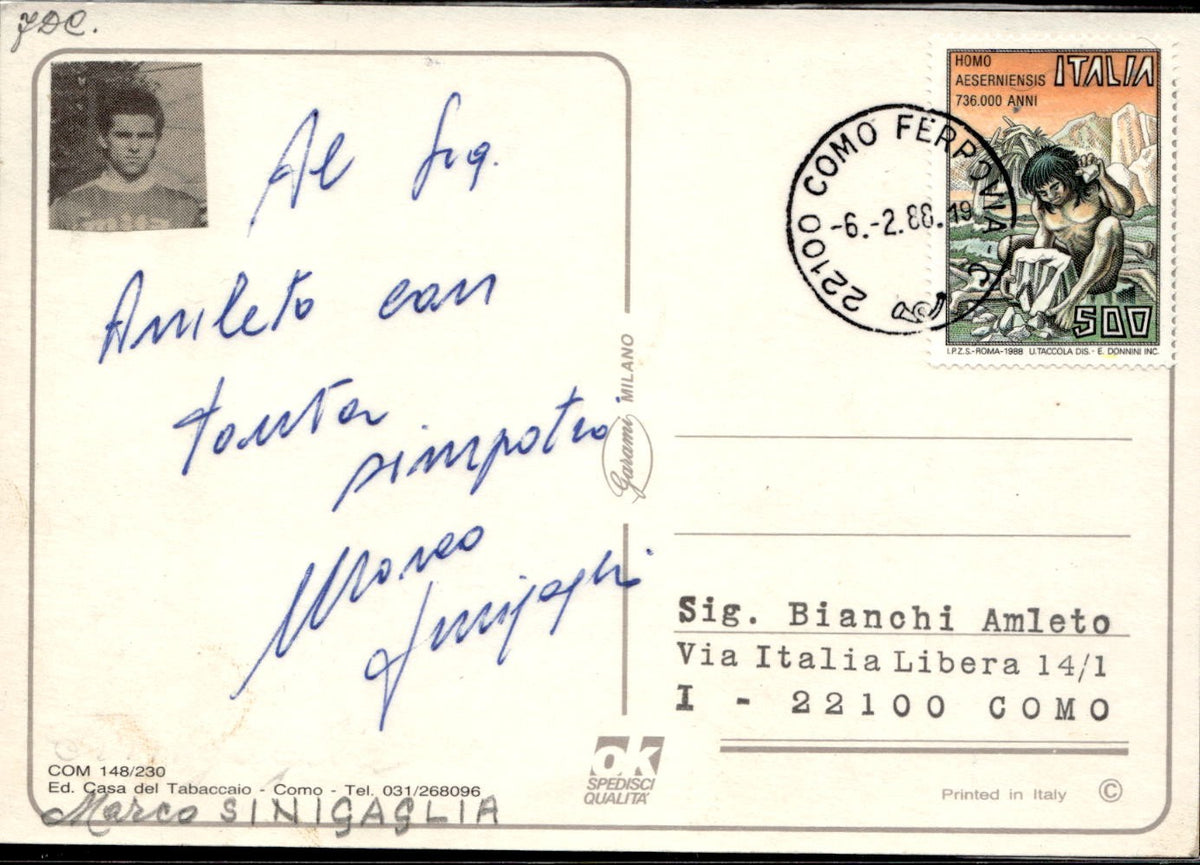 FDC.
Al Sig.
Amleto con
tanta
simpatia
Marco
Sinigaglia
COM 148/230
Ed. Casa del Tabaccaio - Como - Tel. 031/268096
Marco SINIGAGLIA
Garami MILANO
ok
SPEDISCI
QUALITÀ
HOMO
AESERNIENSIS
736.000 ANNI
ITALIA
500
I.P.Z.S.-ROMA-1988 U.TACCOLA DIS.- E. DONNINI INC.
22100 COMO FERROVIA - C.
-6.-2.88.19
Sig. Bianchi Amleto
Via Italia Libera 14/1
I - 22100 COMO
Printed in Italy ©